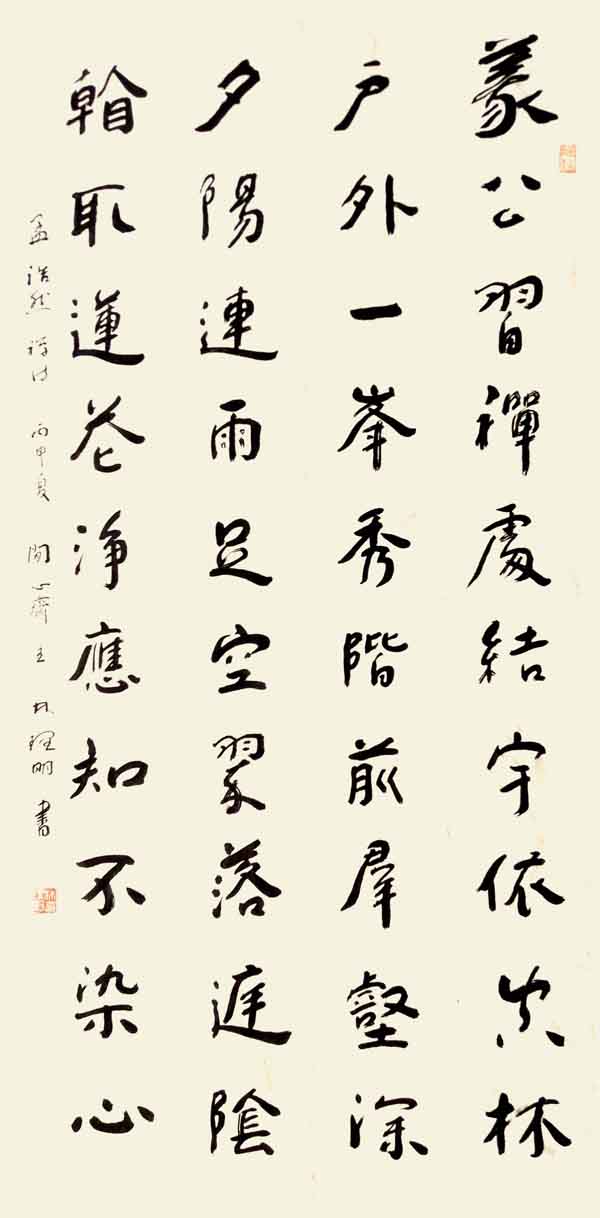 義公習禪處結宇依空林
戶外一峯秀階前羣壑深
夕陽連雨足空翠落庭陰
看取蓮花淨應知不染心
孟浩然禪詩 丙申夏 心齋主 林理明 書